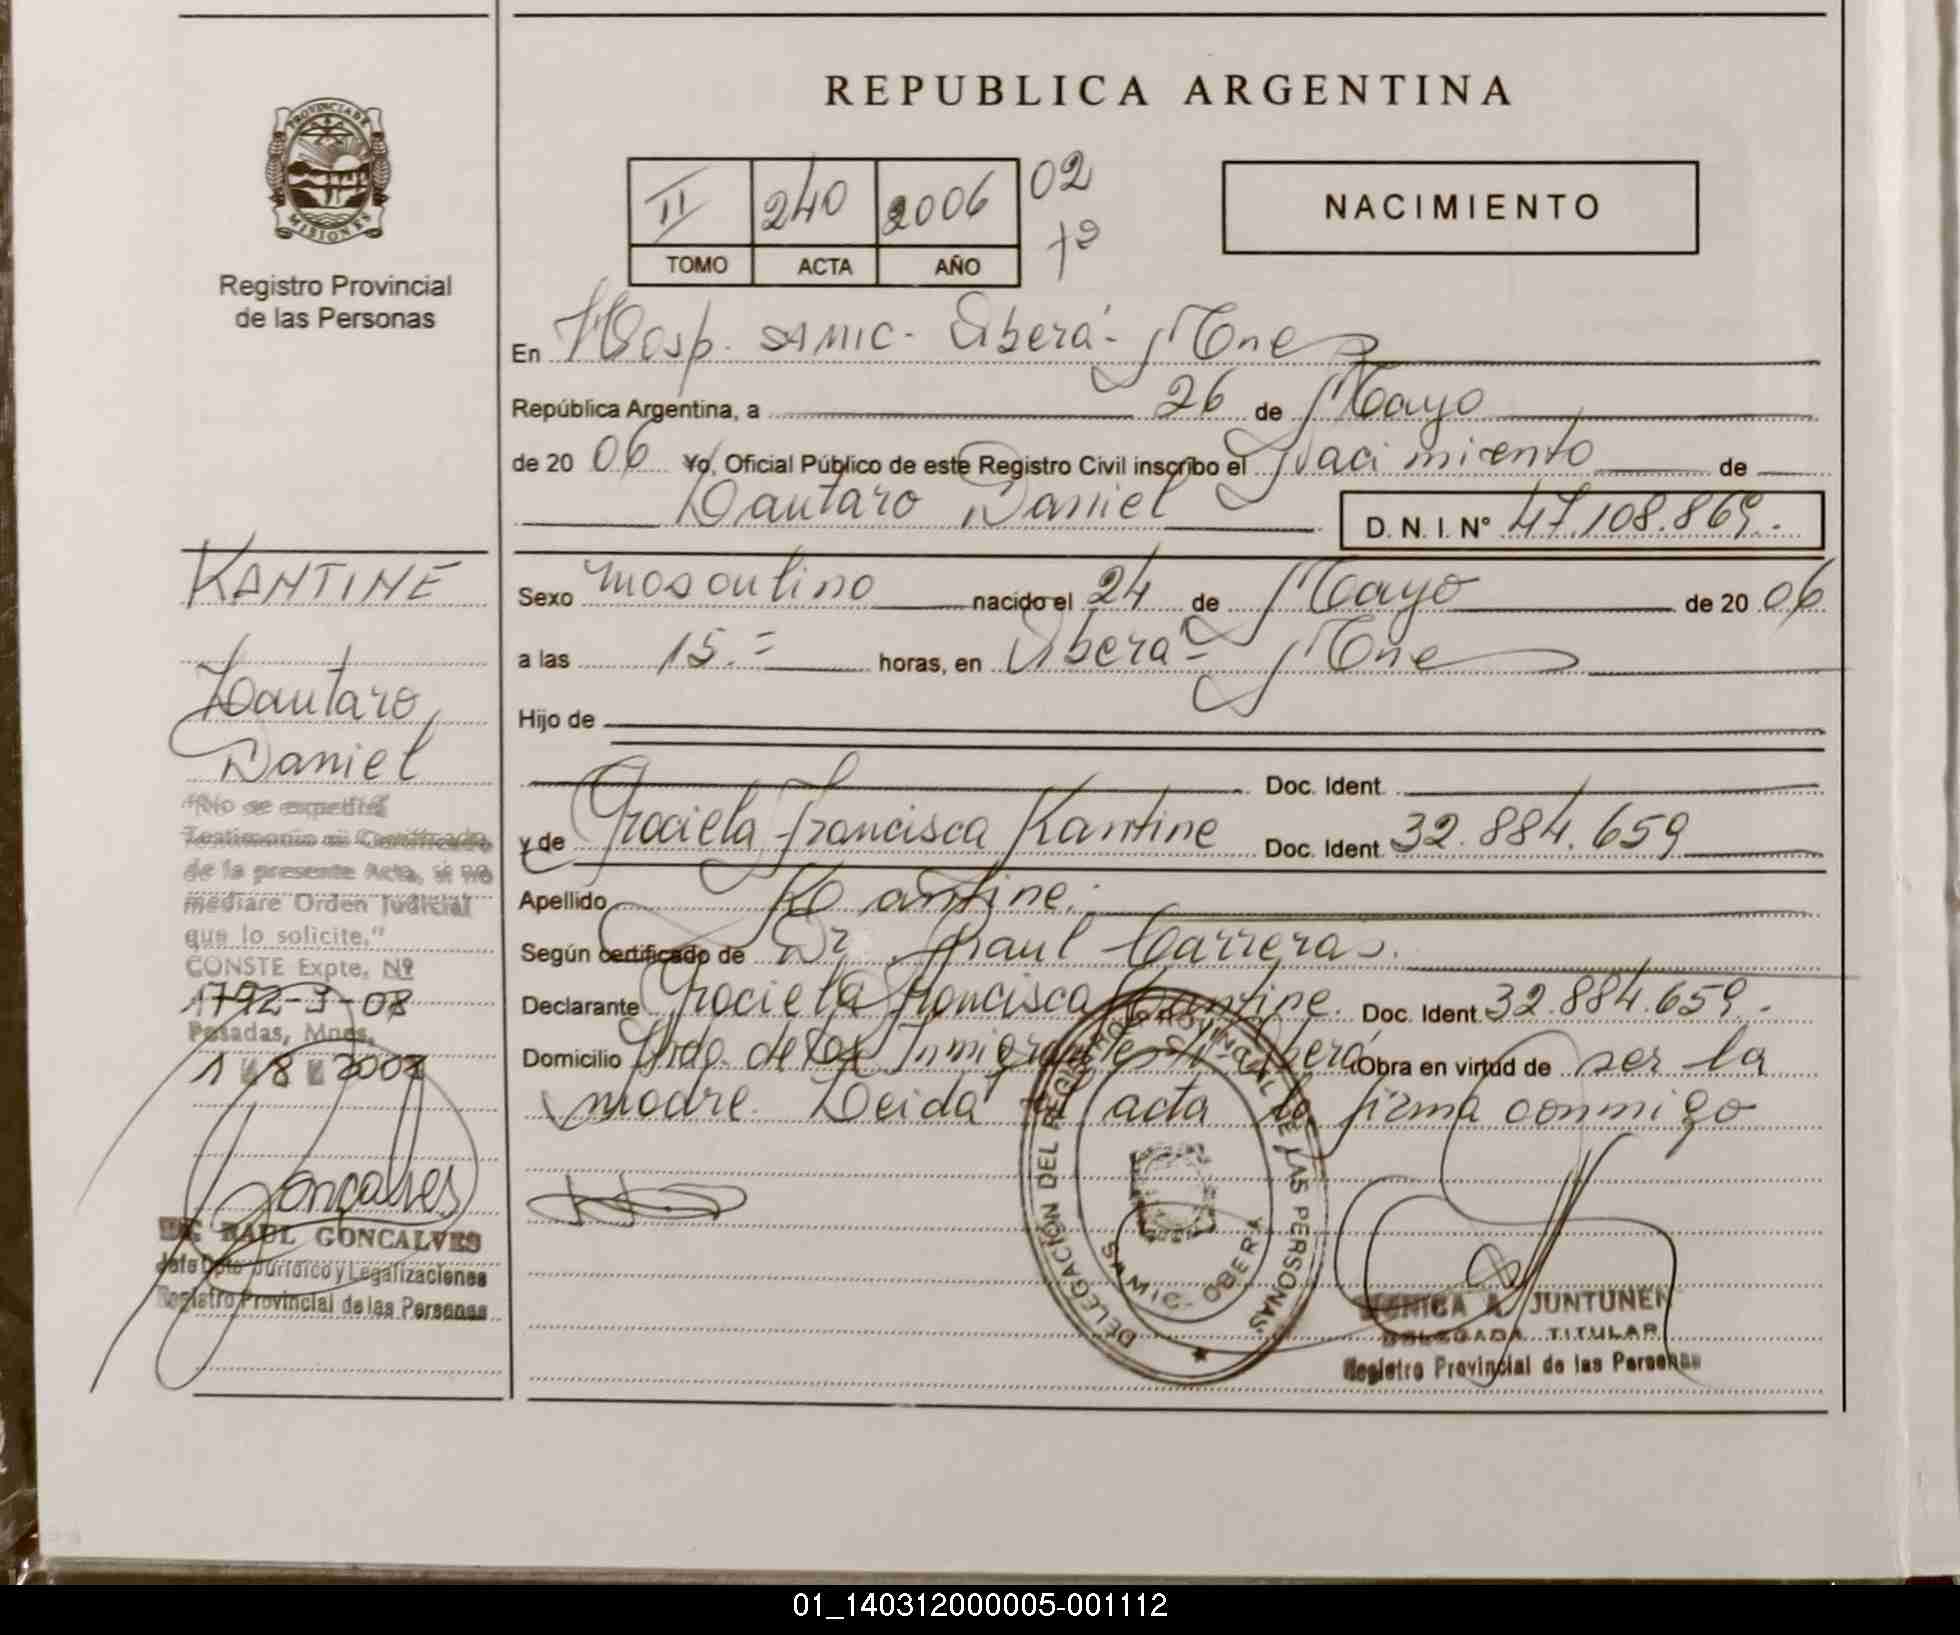 REPUBLICA ARGENTINA
PROVINCIA DE
MISIONES
Registro Provincial
de las Personas
II 240 2006 02
TOMO ACTA AÑO
NACIMIENTO
En Hosp. SAMIC - Oberá - Mnes
República Argentina, a 26 de Mayo
de 20 06 Yo, Oficial Público de este Registro Civil inscribo el Nacimiento de
Lautaro Daniel D. N. I. N° 47.108.869.
Sexo masculino nacido el 24 de Mayo de 20 06
a las 15.= horas, en Oberá - Mnes
Hijo de
Doc. Ident.
y de Graciela Francisca Kantine Doc. Ident. 32.884.659
Apellido Kantine.
Según certificado de Dr. Raul Carreras.
Declarante Graciela Francisca Kantine. Doc. Ident. 32.884.659.
Domicilio de los Inmigrantes Oberá Obra en virtud de ser la
madre. Leida el acta la firma conmigo
KANTINE
Lautaro
Daniel
"No se expedirá
Testimonio ni Certificado
de la presente Acta, si no
mediare Orden Judicial
que lo solicite."
CONSTE Expte. Nº
1792-J-08
Posadas, Mnes.
Goncalves
RAUL GONCALVES
Jefe Dpto Jurídico y Legalizaciones
Registro Provincial de las Personas
DELEGACIÓN DEL REGISTRO PROVINCIAL DE LAS PERSONAS
SAMIC - OBERA
MONICA A. JUNTUNEN
DELEGADA TITULAR
Registro Provincial de las Personas
01_140312000005-001112